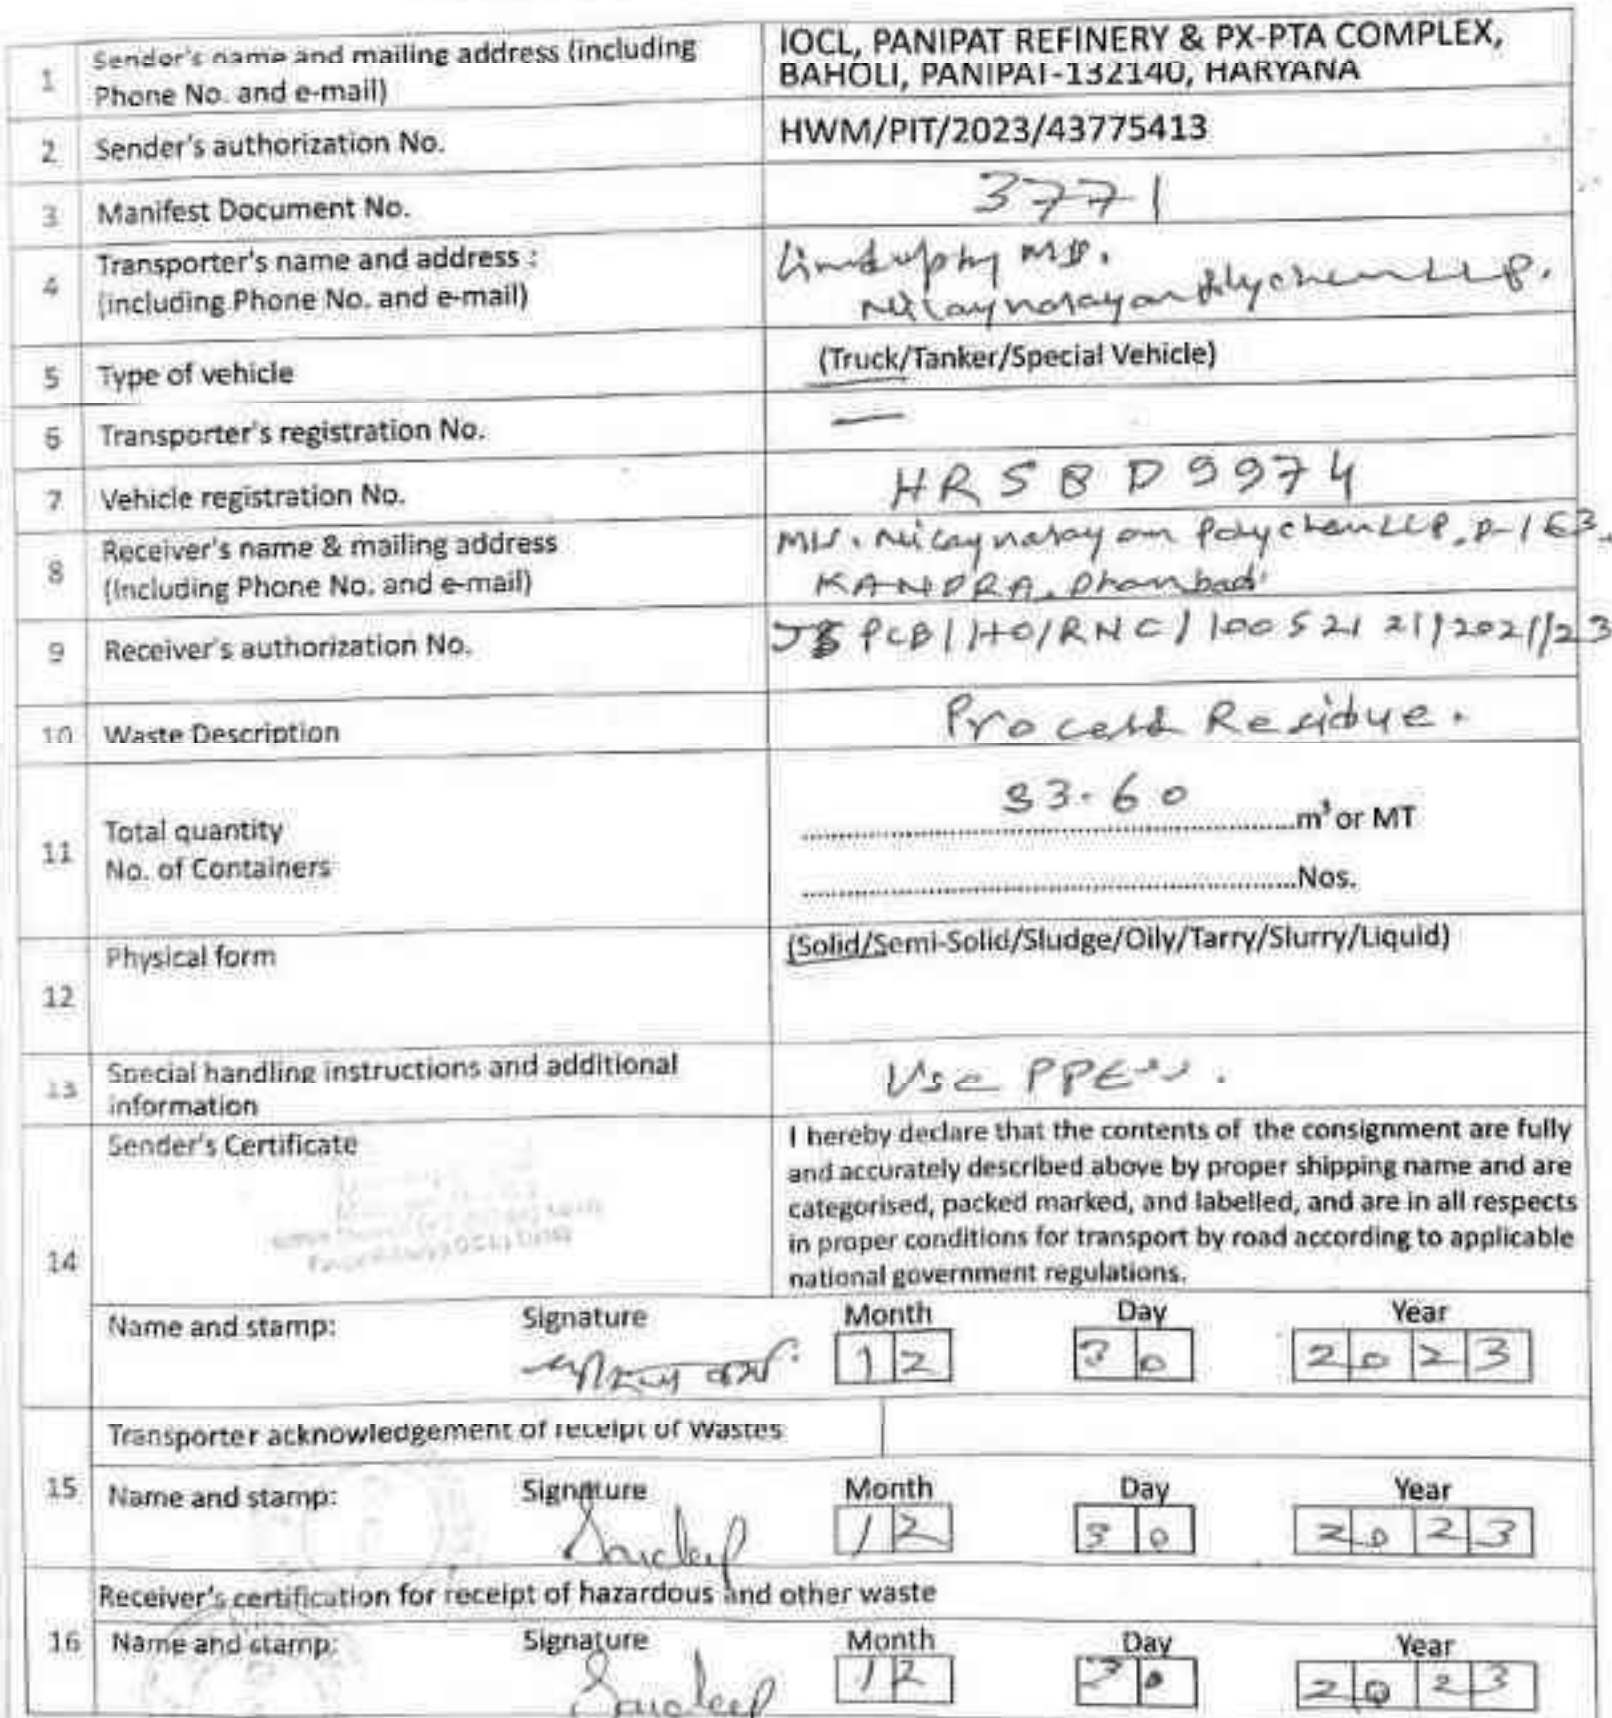 1 Sender's name and mailing address (including
Phone No. and e-mail)
IOCL, PANIPAT REFINERY & PX-PTA COMPLEX,
BAHOLI, PANIPAT-132140, HARYANA
2 Sender's authorization No.
HWM/PIT/2023/43775413
3 Manifest Document No.
3771
4 Transporter's name and address :
(including Phone No. and e-mail)
LLP.
5 Type of vehicle
(Truck/Tanker/Special Vehicle)
6 Transporter's registration No.
—
7 Vehicle registration No.
HR58D9974
8 Receiver's name & mailing address
(Including Phone No. and e-mail)
Polychem LLP,
KANDRA, Dhanbad
9 Receiver's authorization No.
PCB/HO/RNC/10052121/2021/23
10 Waste Description
Process Residue.
11 Total quantity
No. of Containers
33.60 m³ or MT
Nos.
12 Physical form
(Solid/Semi-Solid/Sludge/Oily/Tarry/Slurry/Liquid)
13 Special handling instructions and additional
information
Use PPE's.
14 Sender's Certificate
I hereby declare that the contents of the consignment are fully
and accurately described above by proper shipping name and are
categorised, packed marked, and labelled, and are in all respects
in proper conditions for transport by road according to applicable
national government regulations.
Name and stamp: Signature Month Day Year
12 30 2023
15 Transporter acknowledgement of receipt of Wastes
Name and stamp: Signature Month Day Year
Sandeep 12 30 2023
16 Receiver's certification for receipt of hazardous and other waste
Name and stamp: Signature Month Day Year
Sandeep 12 30 2023